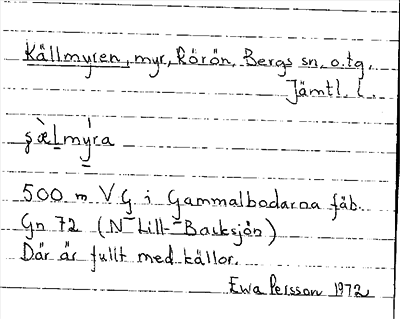 Källmyren, myr, Rörön, Bergs sn. o. tg.
Jämtl. l.
şæ̀lmýra
500 m V G. i Gammalbodarna fäb.
Gn 72 (N Lill-Backsjön)
Där är fullt med källor.
Ewa Persson 1972